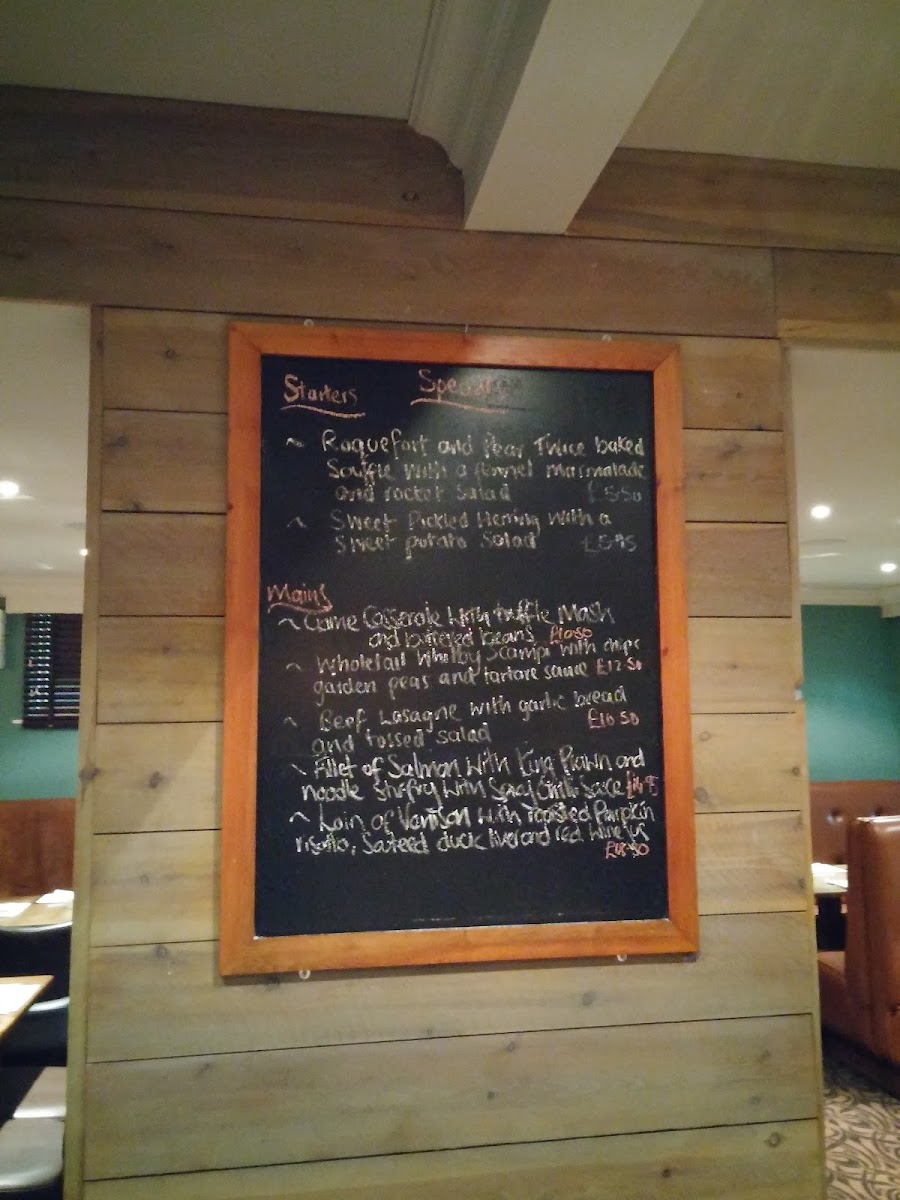 Starters Specials
~ Roquefort and Pear Twice baked
Souffle with a fennel marmalade
and rocket salad £5.50
~ Sweet Pickled Herring with a
Sweet potato Salad £5.95
Mains
~ Game Casserole with truffle Mash
and buttered beans £10.50
~ Wholetail Whitby Scampi with chips
garden peas and tartare sauce £12.50
~ Beef Lasagne with garlic bread
and tossed salad £10.50
~ Fillet of Salmon with King Prawn and
noodle stirfry with Spicy Chilli Sauce
~ Loin of Venison with roasted Pumpkin
risotto, Sauteed duck liver and red wine jus
£18.50